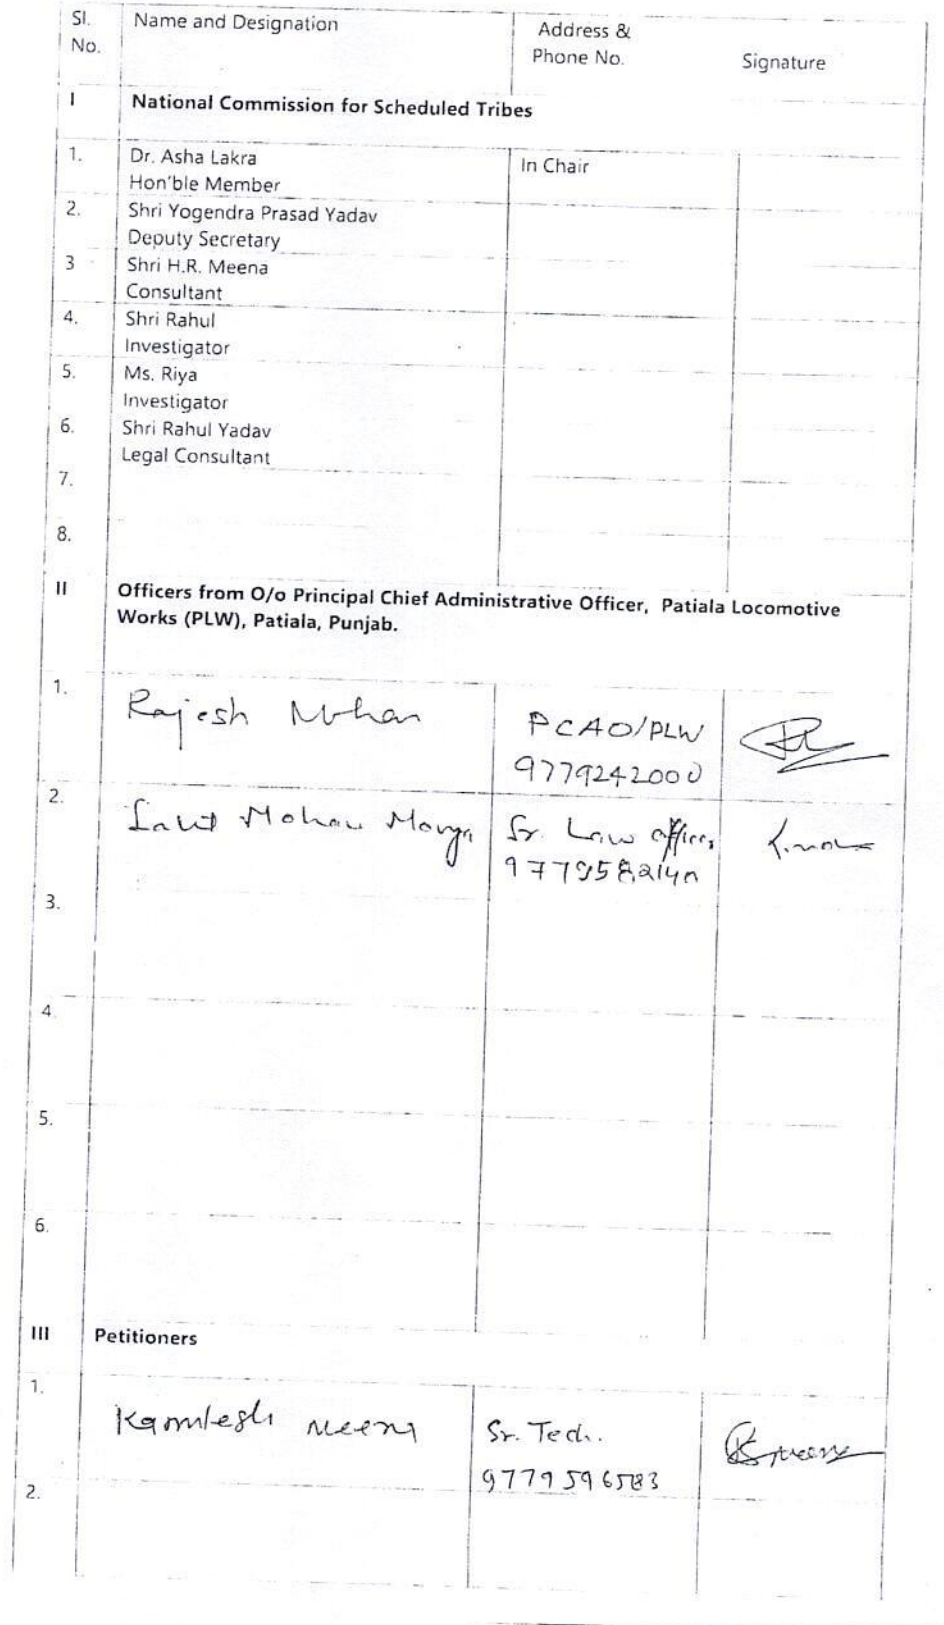 Sl. No. Name and Designation Address & Phone No. Signature
I National Commission for Scheduled Tribes
1. Dr. Asha Lakra In Chair
Hon'ble Member
2. Shri Yogendra Prasad Yadav
Deputy Secretary
3 Shri H.R. Meena
Consultant
4. Shri Rahul
Investigator
5. Ms. Riya
Investigator
6. Shri Rahul Yadav
Legal Consultant
7.
8.
II Officers from O/o Principal Chief Administrative Officer, Patiala Locomotive
Works (PLW), Patiala, Punjab.
1. Rajesh Mohan PCAO/PLW
9779242000
2. Mohan Sr. Law officer
3.
4.
5.
6.
III Petitioners
1. Kamlesh Meena Sr. Tech.
9779596583
2.